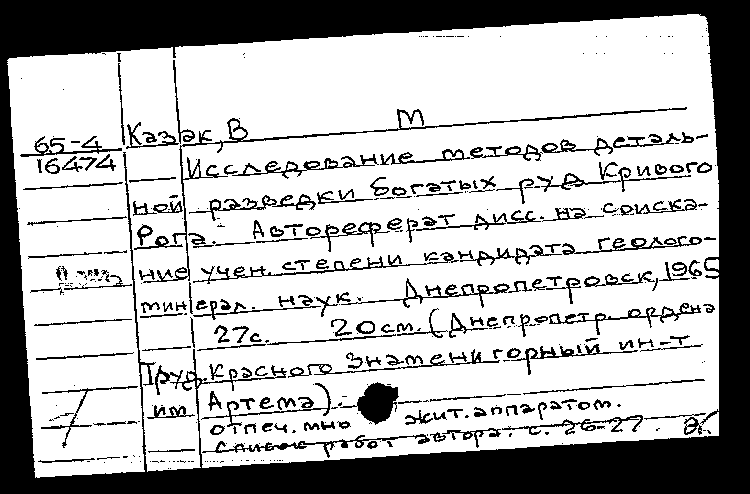 65-4 Казак, В М
16474 Исследование методов деталь-
ной разведки богатых руд Кривого
Рога. Автореферат дисс. на соиска-
ние учен. степени кандидата геолого-
минерал. наук. Днепропетровск, 1965
27с. 20см. (Днепропетр. ордена
Труд. Красного Знамени горный ин-т
им Артема).
отпеч. мно жит. аппаратом.
Список работ автора: с. 26-27.